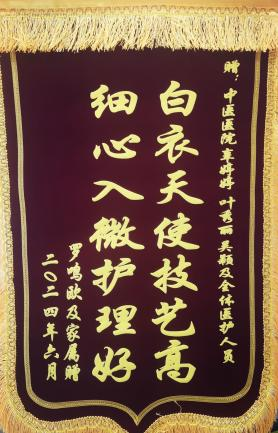 赠：中医医院章婷婷 叶秀丽 吴颖及全体医护人员
白衣天使技艺高
细心入微护理好
罗鸣欧及家属赠
二〇二四年六月